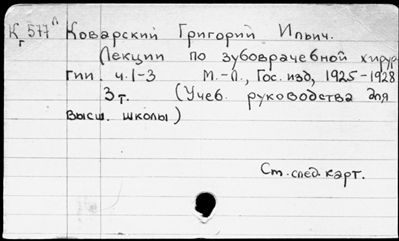 К 577 п Коварский Григорий Ильич.
Г
Лекции по зубоврачебной хирур-
гии. ч. 1-3 М.-Л., Гос. изд, 1925-1928
3 т. (Учеб. руководства для
высш. школы)
См. след. карт.